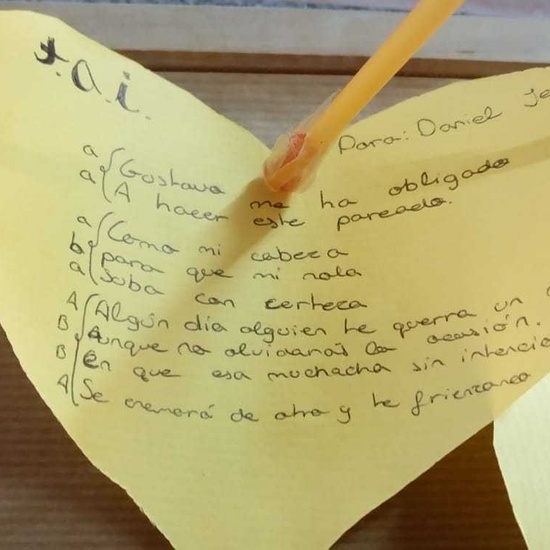 t.a.i.
Para: Daniel Je
a Gustavo me ha obligado
a A hacer este pareado.
a Como mi cabeza
b para que mi nota
a Suba con certeza
A Algún día alguien te querra un
B Aunque no olvidarás la ocasión.
B En que esa muchacha sin intenció
A Se enamoró de otro y te frienzonea